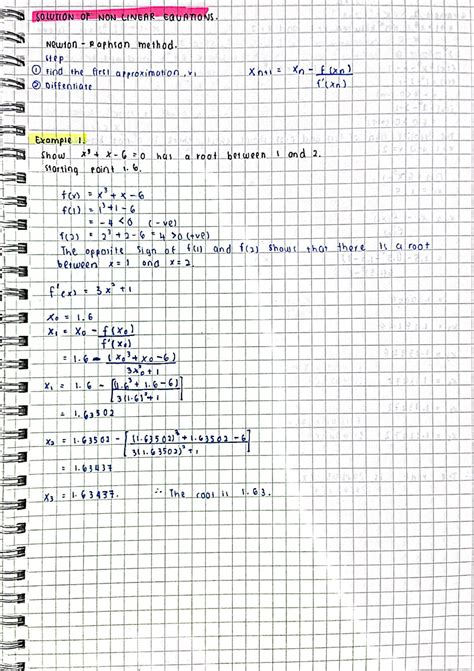 SOLUTION OF NON LINEAR EQUATIONS.
Newton - Raphson method.
Step
① Find the first approximation,
② Differentiate
Xn+1 = Xn - f(xn) / f'(xn)
Example 1.
Show x³ + x - 6 = 0 has a root between 1 and 2.
Starting point 1.6.
f(x) = x³ + x - 6
f(1) = 1³ + 1 - 6
= -4 < 0 (-ve)
f(2) = 2³ + 2 - 6 = 4 > 0 (+ve)
The opposite sign of f(1) and f(2) shows that there is a root
between x = 1 and x = 2.
f'(x) = 3x² + 1
X₀ = 1.6
X₁ = X₀ - f(x₀) / f'(x₀)
= 1.6 - (x₀³ + x₀ - 6) / 3x₀² + 1
X₁ = 1.6 - [(1.6³ + 1.6 - 6) / 3(1.6)² + 1]
= 1.63502
X₂ = 1.63502 - [(1.63502)³ + 1.63502 - 6 / 3(1.63502)² + 1]
= 1.63437
X₃ = 1.63437. ∴ The root is 1.63.